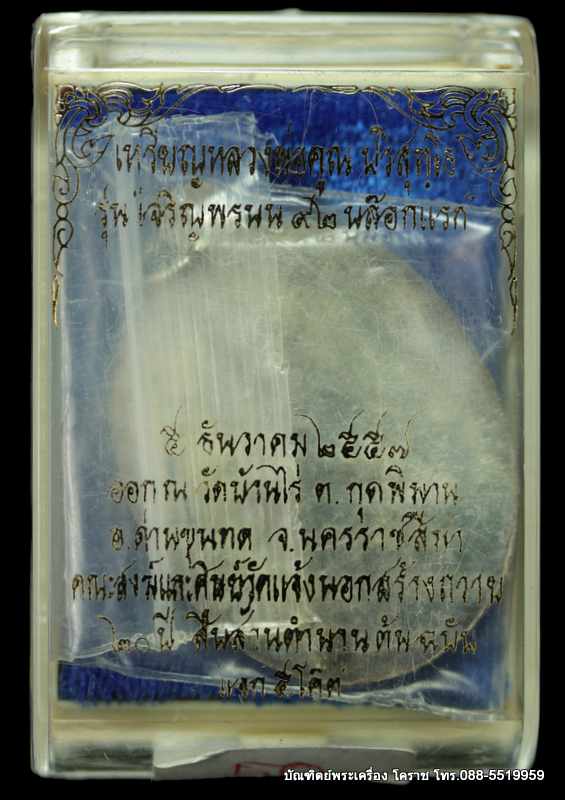 เหรียญหลวงพ่อคูณ ปริสุทฺโธ
รุ่น เจริญพรบน ๙๒ บล๊อกแรก
๕ ธันวาคม ๒๕๕๗
ออก ณ วัดบ้านไร่ ต.กุดพิมาน
อ.ด่านขุนทด จ.นครราชสีมา
คณะสงฆ์และศิษย์วัดแจ้งนอกสร้างถวาย
๒๐ ปี สืบสานตำนาน ต้นฉบับ
แจก ๕ โค๊ต
บัณฑิตย์พระเครื่อง โคราช โทร.088-5519959